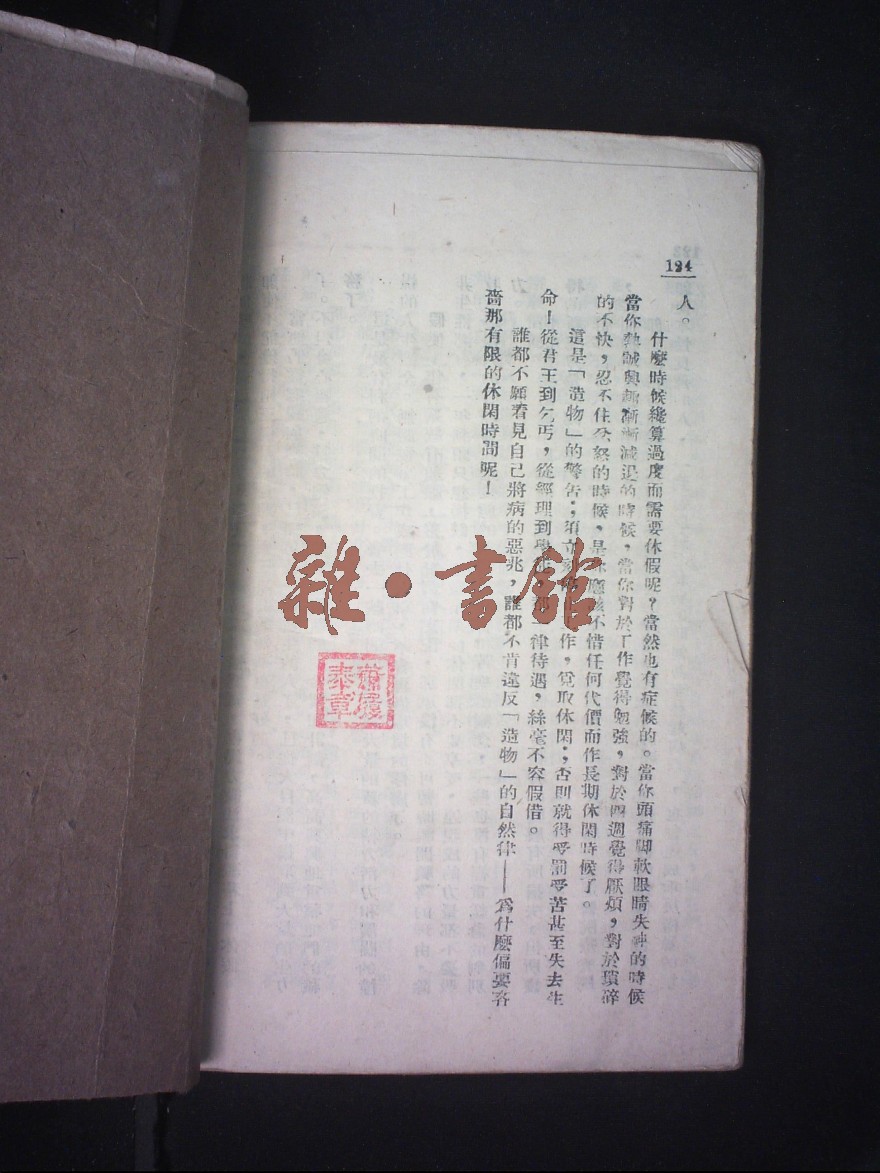 124
人。
什麼時候纔算過度而需要休假呢？當然也有症候的。當你頭痛脚軟眼睛失神的時候
當你熱誠興趣漸漸減退的時候，當你對於工作覺得勉強，對於四週覺得厭煩，對於瑣碎
的不快，忍不住忿怒的時候，是你應該不惜任何代價而作長期休閑時候了。
這是「造物」的警告；須立刻 作，覓取休閑；否則就得受罰受苦甚至失去生
命！從君王到乞丐，從經理到學 一律待遇，絲毫不容假借。
誰都不願看見自己將病的惡兆，誰都不肯違反「造物」的自然律——爲什麼偏要吝
嗇那有限的休閑時間呢！
雜·書館
蕭
泰章